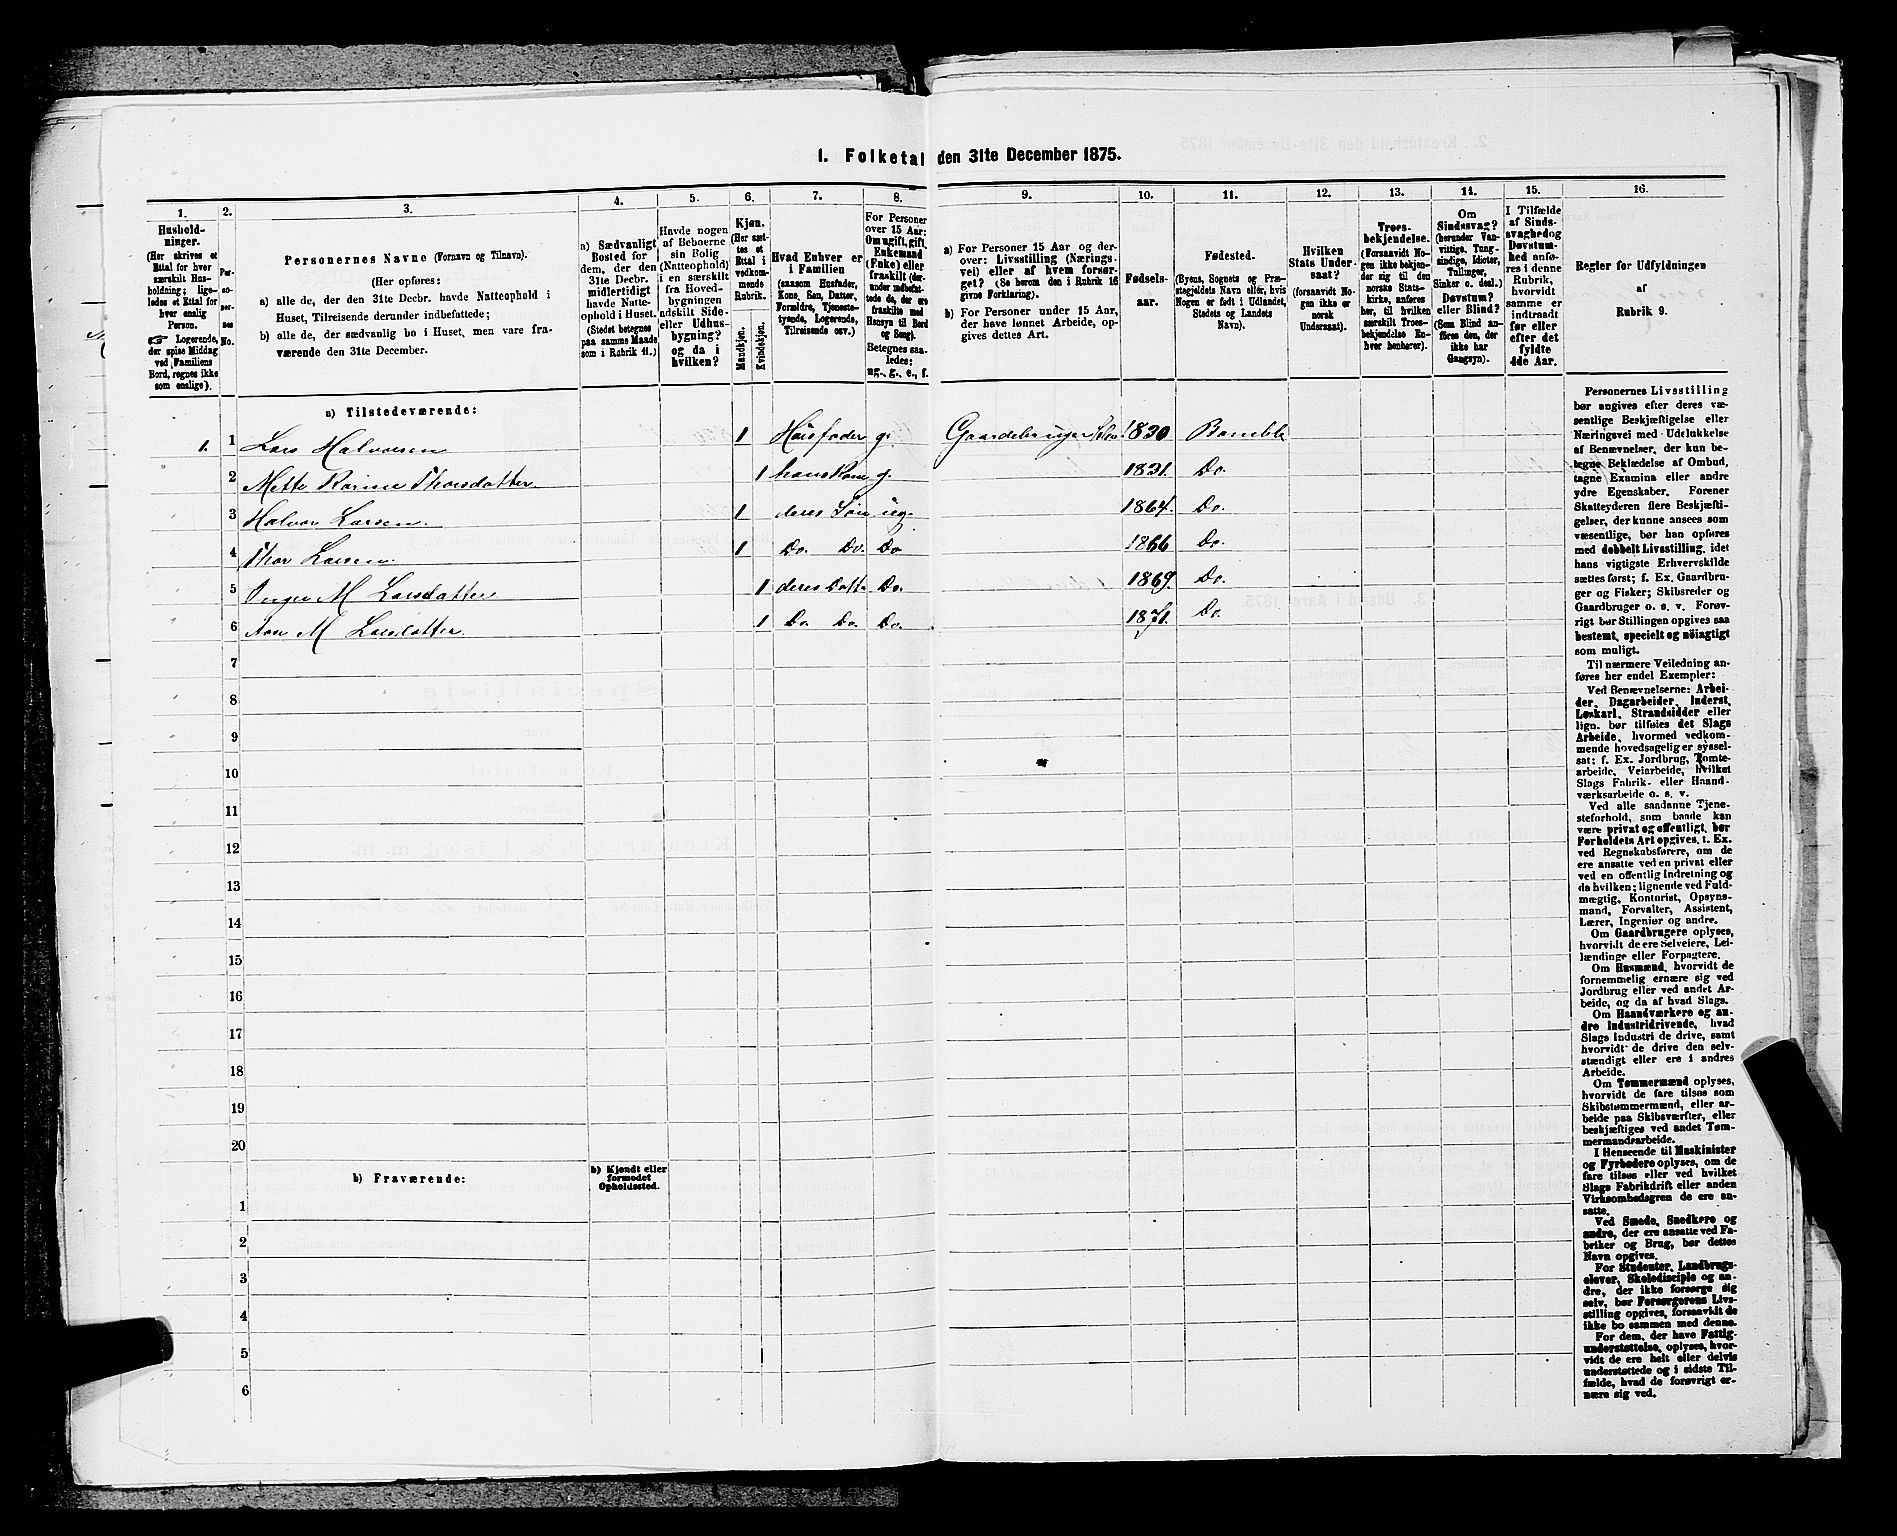 1. Folketal den 31te December 1875.
1. 2. 3. 4. 5. 6. 7. 8. 9. 10. 11. 12. 13. 14. 15. 16.
Hushold-
ninger.
(Her skrives et
Ettal for hver
særskilt Hus-
holdning; lige-
ledes et Ettal for
hver enslig
Person.
☞ Logerende,
der spise Middag
ved Familiens
Bord, regnes ikke
som enslige).
Per-
so-
ner-
nes
No.
Personernes Navne (Fornavn og Tilnavn).
(Her opføres:
a) alle de, der den 31te Decbr. havde Natteophold i
Huset, Tilreisende derunder indbefattede;
b) alle de, der sædvanlig bo i Huset, men vare fra-
værende den 31te December.
a) Sædvanligt
Bosted for
dem, der den
31te Decbr.
midlertidigt
havde Natte-
ophold i Huset.
(Stedet betegnes
paa samme Maade
som i Rubrik 11.)
Havde nogen
af Beboerne
sin Bolig
(Natteophold)
i en særskilt
fra Hoved-
bygningen
adskilt Side-
eller Udhus-
bygning?
og da i
hvilken?
Kjøn.
(Her sæt-
tes et
Ettal i
vedkom-
mende
Rubrik.
Mandkjøn.
Kvindekjøn.
Hvad Enhver er
i Familien
(saasom Husfader,
Kone, Søn, Datter,
Forældre, Tjeneste-
tyende, Logerende,
Tilreisende osv.)
For Personer
over 15 Aar:
Om ugift, gift,
Enkemand
(Enke) eller
fraskilt (der-
under indbefat-
tede de, der ere
fraskilte med
Hensyn til Bord
og Seng).
Betegnes saa-
ledes:
ug., g., e., f.
a) For Personer 15 Aar og der-
over: Livsstilling (Nærings-
vei) eller af hvem forsør-
get? (Se herom den i Rubrik 16
givne Forklaring).
b) For Personer under 15 Aar,
der have lønnet Arbeide, op-
gives dettes Art.
Fødsels-
aar.
Fødested.
(Byens, Sognets og Præ-
stegjeldets Navn eller, hvis
Nogen er født i Udlandet,
Stedets og Landets
Navn).
Hvilken
Stats Under-
saat?
(forsaavidt No-
gen ikke er
norsk
Undersaat).
Troes-
bekjendelse.
(Forsaavidt No-
gen ikke bekjen-
der sig til den
norske Stats-
kirke, anføres
her, til hvilken
særskilt Troes-
bekjendelse En-
hver henhører).
Om
Sindssvag?
(herunder Van-
vittige, Tung-
sindige, Idioter,
Tullinger,
Sinker o. desl.)
Døvstum?
eller Blind?
(Som Blind an-
føres den, der
ikke har
Gangsyn).
I Tilfælde
af Sinds-
svaghed og
Døvstum-
hed anfø-
res i denne
Rubrik,
hvorvidt
samme er
indtraadt
før eller
efter det
fyldte
4de Aar.
Regler for Udfyldningen
af
Rubrik 9.
a) Tilstedeværende:
1. 1 Lars Halvorsen 1 Huusfader g. Gaardebruger Selv. 1830 Bamble
2 Mette Karine Thorsdatter 1 hans Kone g. 1831. Do.
3 Halvor Larsen. 1 deres Søn ug. 1864. Do.
4 Thor Larsen 1 Do. Do. Do 1866 Do.
5 Inger M Larsdatter 1 deres Datte Do. 1869. Do.
6 Ann M Larsdatter. 1 Do. Do. Do. 1871. Do.
7
8
9
10
11
12
13
14
15
16
17
18
19
20
b) Fraværende:
b) Kjendt eller
formodet
Opholdssted.
1
2
3
4
5
6
Personernes Livsstilling
bør angives efter deres væ-
sentlige Beskjæftigelse eller
Næringsvei med Udelukkelse
af Benævnelser, der kun be-
tegne Beklædelse af Ombud,
tagne Examina eller andre
ydre Egenskaber. Forener
Skatteyderen flere Beskjæfti-
gelser, der kunne ansees som
væsentlige, bør han opføres
med dobbelt Livsstilling, idet
hans vigtigste Erhvervskilde
sættes først; f. Ex. Gaardbru-
ger og Fisker; Skibsreder og
Gaardbruger o. s. v. Forøv-
rigt bør Stillingen opgives saa
bestemt, specielt og nøiagtigt
som muligt.
Til nærmere Veiledning an-
føres her endel Exempler:
Ved Benævnelserne: Arbei-
der, Dagarbeider, Inderst,
Løskarl, Strandsidder eller
lign. bør tilføies det Slags
Arbeide, hvormed vedkom-
mende hovedsagelig er syssel-
sat; f. Ex. Jordbrug, Tomte-
arbeide, Veiarbeide, hvilket
Slags Fabrik- eller Haand-
værksarbeide o. s. v.
Ved alle saadanne Tjene-
steforhold, som baade kan
være privat og offentligt, bør
Forholdets Art opgives, t. Ex.
ved Regnskabsførere, om de
ere ansatte ved en privat eller
ved en offentlig Indretning og
da hvilken; lignende ved Fuld-
mægtig, Kontorist, Opsyns-
mand, Forvalter, Assistent,
Lærer, Ingeniør og andre.
Om Gaardbrugere oplyses,
hvorvidt de ere Selveiere, Lei-
lændinge eller Forpagtere.
Om Husmænd, hvorvidt de
fornemmelig ernære sig ved
Jordbrug eller ved andet Ar-
beide, og da af hvad Slags.
Om Haandværkere og an-
dre Industridrivende, hvad
Slags Industri de drive, samt
hvorvidt de drive den selv-
stændigt eller ere i andres
Arbeide.
Om Tømmermænd oplyses,
hvorvidt de fare tilsøs som
Skibstømmermænd, eller ar-
beide paa Skibsværfter, eller
beskjæftiges ved andet Tøm-
mermandsarbeide.
I Henseende til Maskinister
og Fyrbødere oplyses, om de
fare tilsøs eller ved hvilket
Slags Fabrikdrift eller anden
Virksombedsgren de ere an-
satte.
Ved Smede, Snedkere og
andre, der ere ansatte ved Fa-
briker og Brug, bør dettes
Navn opgives.
For Studenter, Landbrugs-
elever, Skoledisciple og an-
dre, der ikke forsørge sig
selv, bør Forsørgerens Livs-
stilling opgives, forsaavidt de
ikke bo sammen med denne.
For dem, der have Fattig-
understøttelse, oplyses, hvor-
vidt de ere helt eller delvis
understøttede og i sidste Til-
fælde, hvad de forøvrigt er-
nære sig ved.